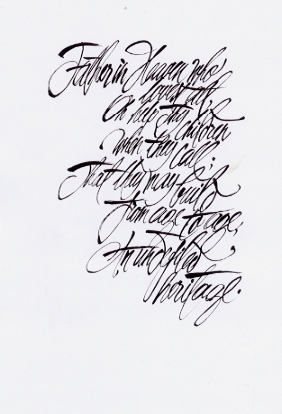 Father in Heaven who
lovest all,
Oh help Thy
children
when they call;
That they may build
from age to age,
An undefiled
heritage.